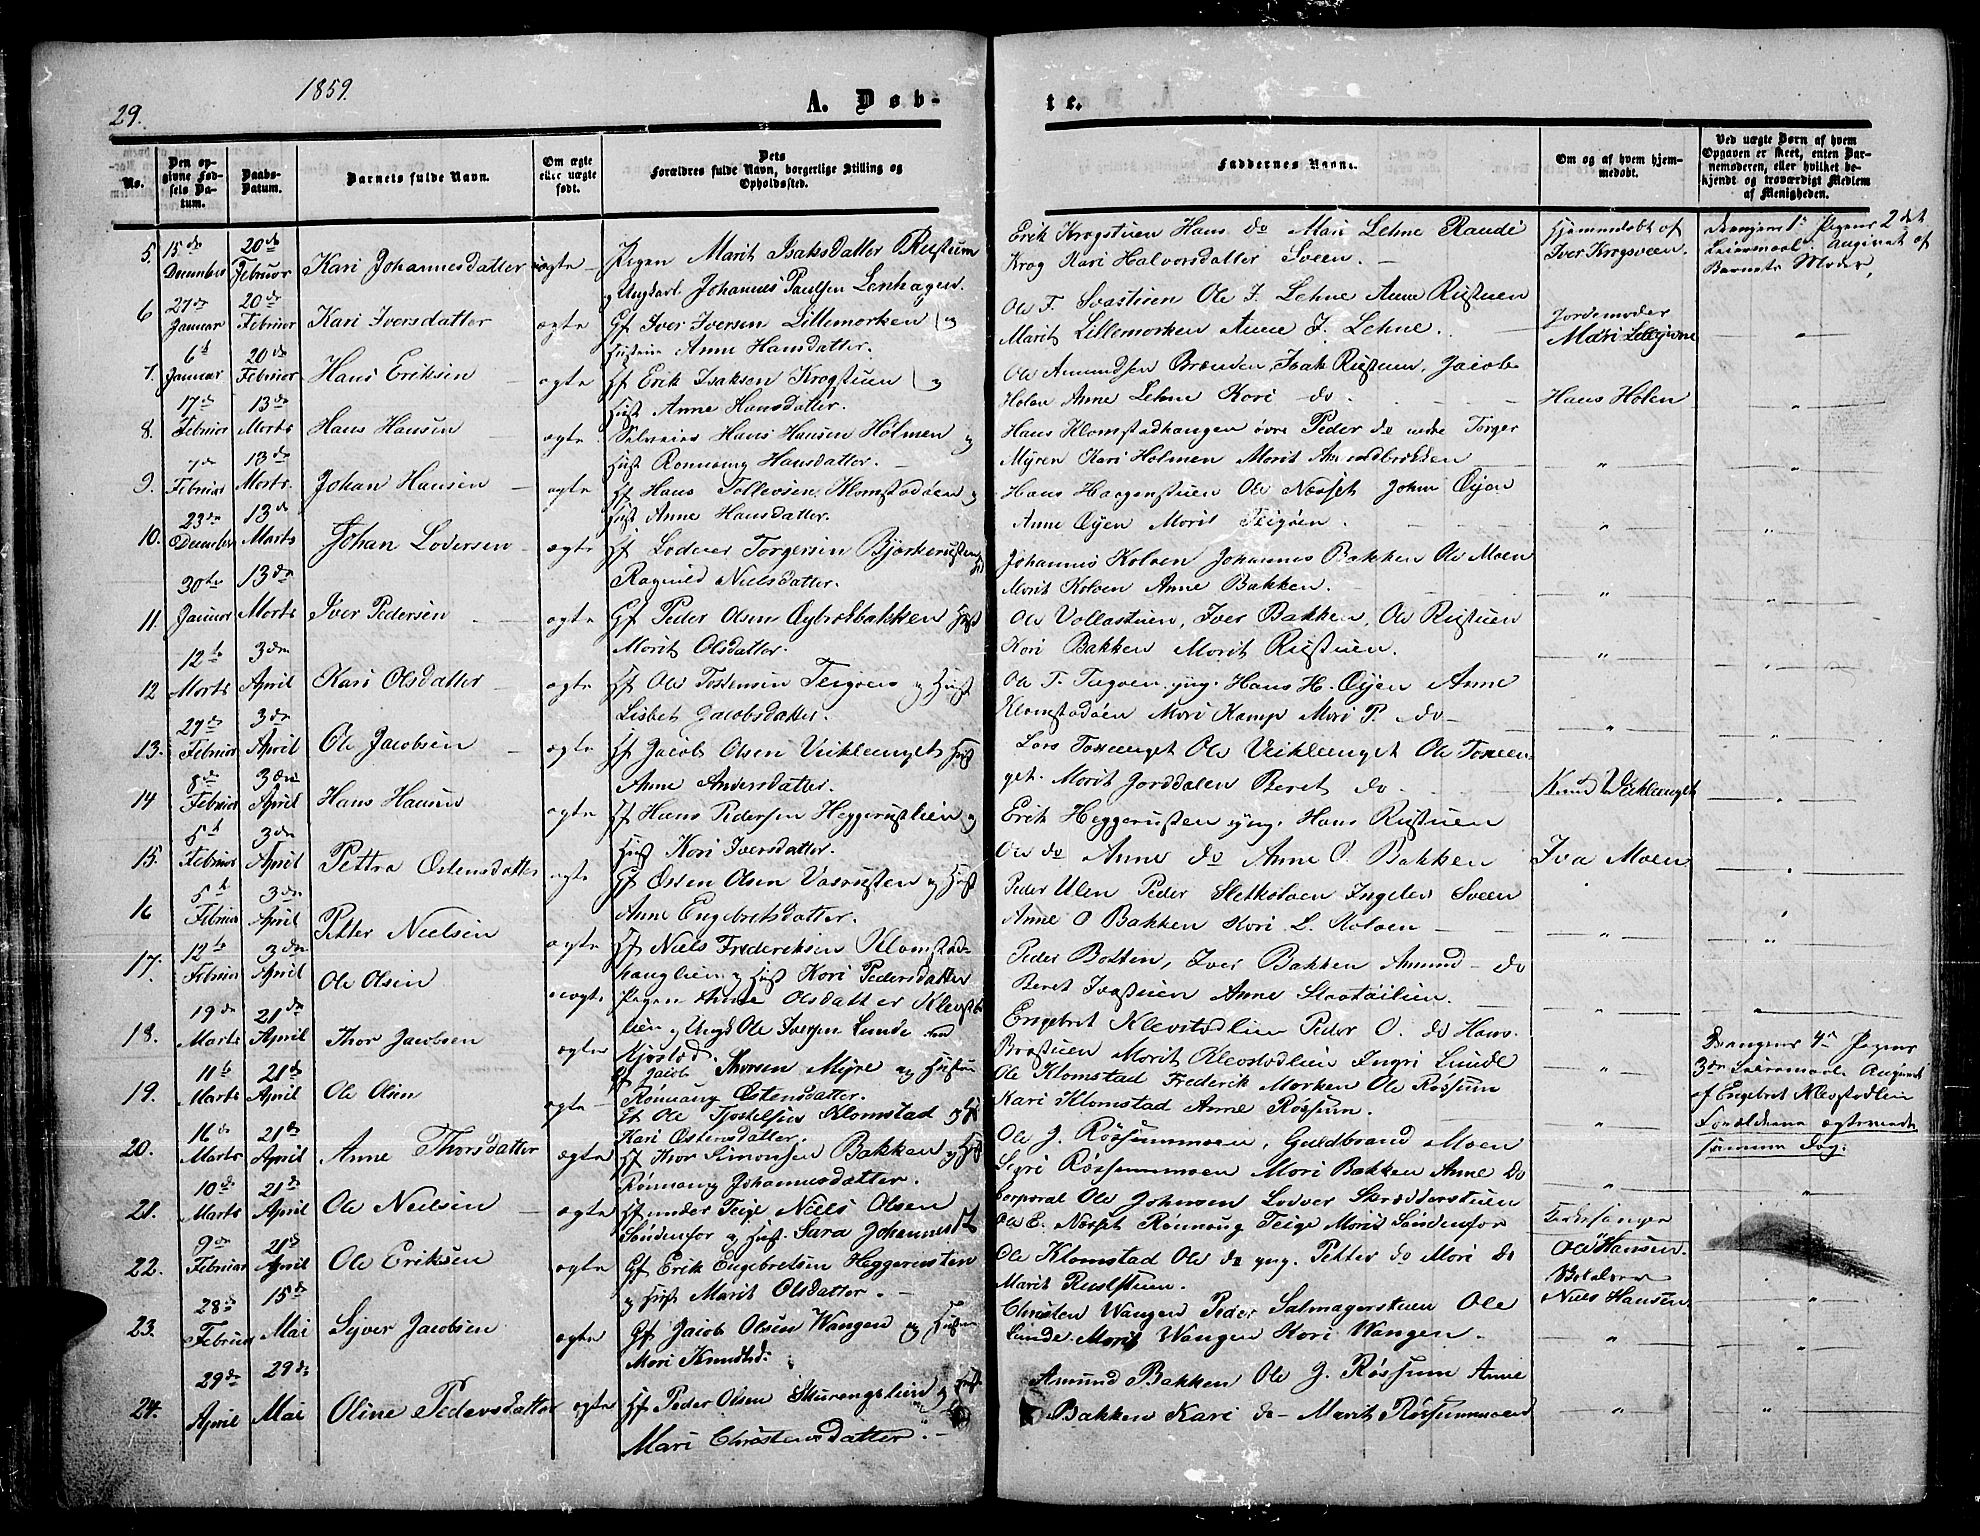 29.
1859.
A. Døb-
te.
No.
Den opgivne Fødsels Datum.
Daabs-Datum.
Barnets fulde Navn.
Om ægte eller uægte født.
Dets Forældres fulde Navn, borgerlige Stilling og Opholdssted.
Faddernes Navne.
Om og af hvem hjemmedøbt.
Ved uægte Børn af hvem Opgaven er skeet, enten Barnemoderen, eller hvilket bekjendt og troværdigt Medlem af Menigheden.
5. 15de December 20de Februar Kari Johannesdatter uægte Pigen Marit Isaksdatter Rustuen
og Ungkarl Johannes Paulsen Lenhagen.
Erik Krogstuen Hans do Mari Lehne Randi
Krog Kari Halvorsdatter Sveen.
Hjemmedøbt af
Iver Krogsveen
Drengens 1ste Pigens 2det
Leiermaal: Angivet af
Barnets Moder,
6 27de Januar 20de Februar Kari Iversdatter ægte Gf Iver Iversen Lillemorken og
Hustrue Anne Hansdatter.
Ole T. Svastuen Ole I. Lehne Anne Rustuen
Marit Lillemorken Anne I. Lehne.
Jordemoder
Mari Lillegivne
7. 6te Januar 20de Februar Hans Eriksen ægte Hf Erik Isaksen Krogstuen og
Hust Anne Hansdatter.
Ole Amundsen Brænden, Isak Rustuen, Jacob
Holen Anne Lehne Kari do.
Hans Holen
8. 17de Februar 13de Marts Hans Hansen ægte Selveier Hans Hansen Holmen og
Hust Rønnaug Hansdatter.
Hans Klomstadhaugen øvre Peder do nedre Torger
Myren Kari Holmen Marit Amundbakken
9. 7de Februar 13de Marts. Johan Hansen ægte Hf Hans Tollevsen Klomstadøen og
Hust Anne Hansdatter.
Hans Haagenstuen Ole Næsset Johan Øyen
Anne Øyen Marit Teigøen.
10. 23de December 13de Marts Johan Loversen ægte Hf Lodver Torgersen Bjørkerusten
Ragnild Nielsdatter.
Johannes Kolven Johannes Bakken Ole Moen
Marit Kolven Anne Bakken.
11. 30te Januar 13de Marts Iver Pedersen ægte Gf Peder Olsen Øybrætbakken Hust
Marit Olsdatter.
Ole Vollastuen, Iver Bakken, Ole Rustuen
Kari Bakken Marit Rustuen.
12 12te Marts 3die April Kari Olsdatter ægte Hf Ole Tostensen Teigøen og Hust
Lisbet Jacobsdatter.
Ole T. Teigøen yng. Hans H. Øyen Anne
Klomstadøen Mari Kamp Mari P. do
13. 27de Februar 3die April Ole Jacobsen ægte Hf Jacob Olsen Veikleenget Hust
Anne Andersdatter.
Lars Toxeenget Ole Veikleenget Ole Toxeen-
get. Marit Jorddalen Beret do.
Knud Veikleenget
14 8de Februar 3die April Hans Hansen ægte Hf Hans Pedersen Heggerustlien og
Hust Kari Iversdatter.
Erik Heggerusten yng. Hans Rustuen
Ole do Anne do Anne O. Bakken
Iva Moen
15. 5te Februar 3die April Pettra Østensdatter ægte Gf Østen Olsen Vasrusten og Hust
Anne Engebretsdatter.
Peder Ulen Peder Sletkolven Ingeler Sveen
Anne O Bakken Kari L. Kolven
16 5te Februar 3die April Petter Nielsen ægte Hf Niels Frederiksen Klomstad-
hauglien og Hust Kari Pedersdatter
Peder Botten, Iver Bakken Amund do
Beret Ivastuen Anne Slaataalien.
17. 12te Februar 3die April Ole Olsen uægte Pigen Anne Olsdatter Klevstad-
lien og Ungk Ole Iversen Lunde
Kjøstad.
Engebret Klevstadlien Peder O. do Hans
Brøstuen Marit Klevstadlien Ingri Lunde
Drengens 4de Pigens
3die Leiermaal. Angivet
af Engebret Klevstadlien
Forældrene ægteviede
samme Dag.
18. 19de Marts 21de April Thor Jacobsen ægte Gf Jacob Thorsen Myre og Hustrue
Rønnaug Østensdatter.
Ole Klomstad Frederik Morken Ole Røssum
Kari Klomstad Anne Røssum.
19. 11te Marts 21de April Ole Olsen ægte Ole Tjostelsen Klomstad og H
Kari Østensdatter.
Ole J. Røssummoen, Guldbrand Moen
Sigri Røssummoen Mari Bakken Anne do
20. 16de Marts 21de April Anne Thorsdatter ægte Hf Thor Simonsen Bakken og Hust
Rønnaug Johannesdatter.
Corporal Ole Johnsen Lodver Skrædderstuen
Ole E. Næsset Rønnaug Teige Marit Søndenfor
21. 10de Marts 21de April Ole Nielsen ægte Hf under Teige Niels Olsen
Søndenfor og Hust. Sara Johannesd
Ole Klomstad Ole do yng. Petter do Mari do
Marit Rustuen.
Kirkesanger
Ole Hansen.
22. 9de Februar 21de April Ole Eriksen ægte Gf Erik Engebretsen Heggerusten
og Hust Marit Olsdatter.
Christen Wangen Peder Salmagerstuen Ole
Lunde. Marit Wangen Kari Wangen.
Niels Hansen
23. 28de Februar 15de Mai Syver Jacobsen ægte Gf Jacob Olsen Wangen og Hustrue
Mari Knudsd:
24. 29de April 29de Mai Oline Pedersdatter ægte Hf Peder Olsen Skurengslien og Hust
Mari Christensdatter.
Amund Bakken Ole J. Røssum Anne
Bakken Kari do Marit Røssummoen